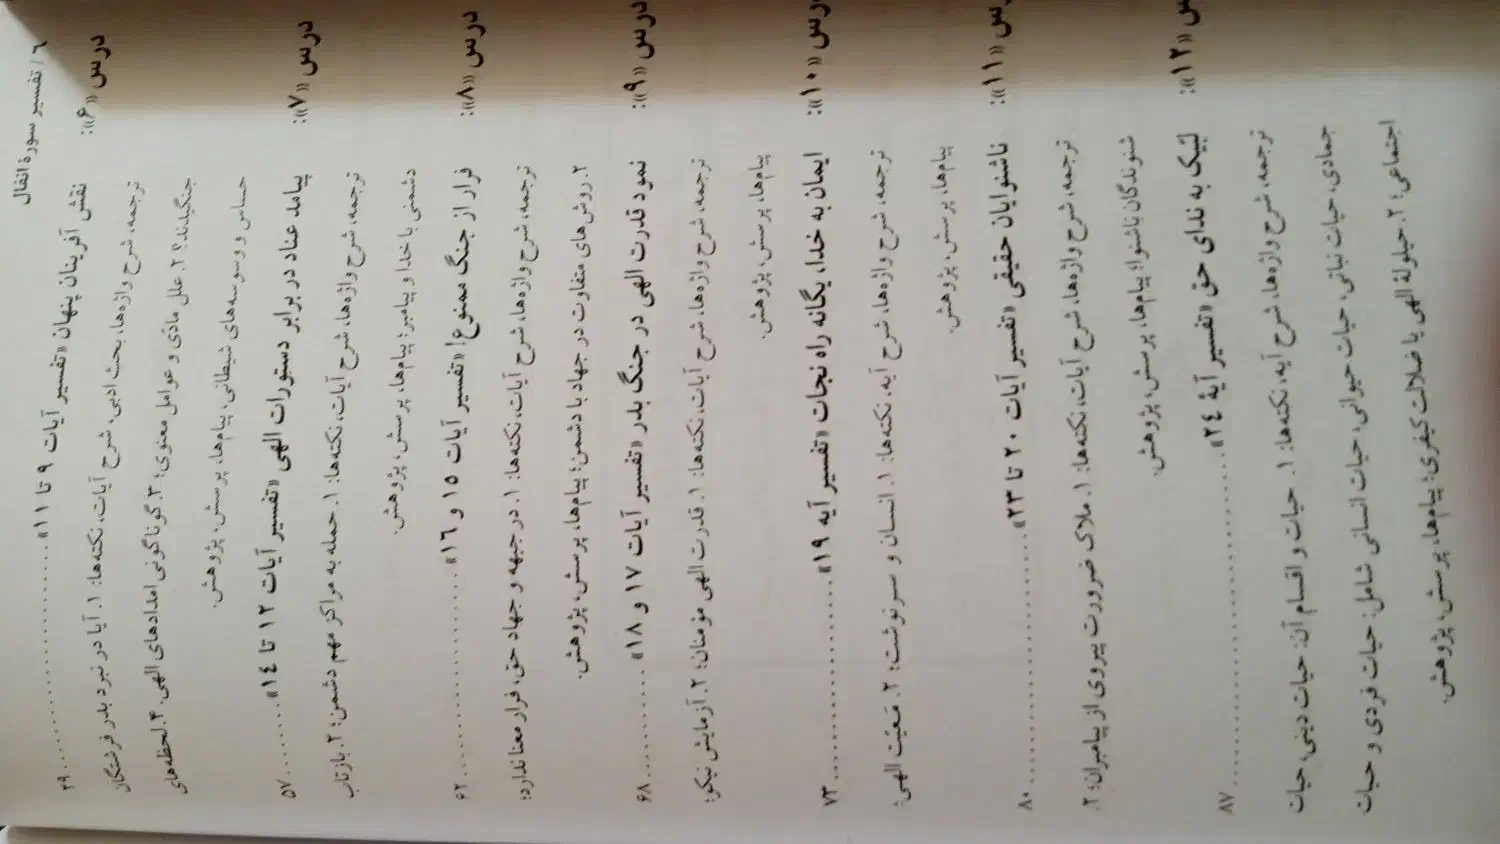 ٦ / تفسیر سورهٔ انفال
درس «۶»: نقش آفرینان پنهان «تفسیر آیات ۹ تا ۱۱» ........ ۴۹
ترجمه، شرح واژه‌ها، بحث ادبی، شرح آیات، نکته‌ها: ۱. آیا در نبرد بدر فرشتگان
جنگیدند؟ ۲. علل مادّی و عوامل معنوی؛ ۳. گوناگونی امدادهای الهی. ۴. لحظه‌های
حساس و وسوسه‌های شیطانی، پیام‌ها، پرسش، پژوهش.
درس «۷»: پیامد عناد در برابر دستورات الهی «تفسیر آیات ۱۲ تا ۱٤» ........ ۵۷
ترجمه، شرح واژه‌ها، شرح آیات، نکته‌ها: ۱. حمله به مراکز مهم دشمن؛ ۲. بازتاب
دشمنی با خدا و پیامبر؛ پیام‌ها، پرسش، پژوهش.
درس «۸»: فرار از جنگ ممنوع! «تفسیر آیات ۱۵ و ۱٦» ........ ۶۲
ترجمه، شرح واژه‌ها، شرح آیات، نکته‌ها: ۱. در جبهه و جهاد حق، فرار معنا ندارد؛
۲. روش‌های متفاوت در جهاد با دشمن؛ پیام‌ها، پرسش، پژوهش.
درس «۹»: نمود قدرت الهی در جنگ بدر «تفسیر آیات ۱۷ و ۱۸» ........ ۶۸
ترجمه، شرح واژه‌ها، شرح آیات، نکته‌ها: ۱. قدرت الهی مؤمنان؛ ۲. آزمایش نیکو؛
پیام‌ها، پرسش، پژوهش.
درس «۱۰»: ایمان به خدا، یگانه راه نجات «تفسیر آیه ۱۹» ........ ۷۳
ترجمه، شرح واژه‌ها، شرح آیه، نکته‌ها: ۱. انسان و سرنوشت؛ ۲. مَعیّت الهی؛
پیام‌ها، پرسش، پژوهش.
درس «۱۱»: ناشنوایان حقیقی «تفسیر آیات ۲۰ تا ۲۳» ........ ۸۰
ترجمه، شرح واژه‌ها، شرح آیات، نکته‌ها: ۱. ملاک ضرورت پیروی از پیامبران؛ ۲.
شنوندگان ناشنوا؛ پیام‌ها، پرسش، پژوهش.
درس «۱۲»: لبّیک به ندای حق «تفسیر آیهٔ ۲٤» ........ ۸۷
ترجمه، شرح واژه‌ها، شرح آیه، نکته‌ها: ۱. حیات و اقسام آن: حیات دینی، حیات
جمادی، حیات نباتی، حیات حیوانی، حیات انسانی شامل: حیات فردی و حیات
اجتماعی؛ ۲. حیلولهٔ الهی یا ضلالت کیفری؛ پیام‌ها، پرسش، پژوهش.